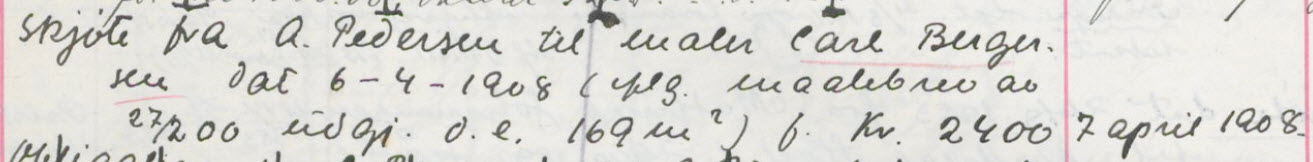 skjøte fra A. Pedersen til maler Carl Berger-
sen dat 6-4-1908 (iflg. maalebrev av
27/200 udgj. d.e. 169 m²) f. Kr. 2400 7 april 1908.